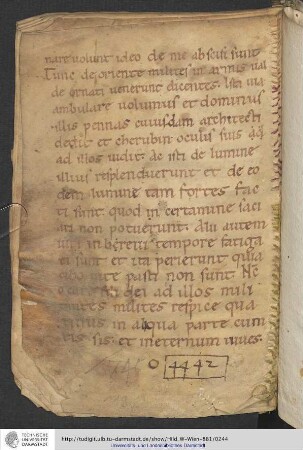 nare volunt ideo de me absciſi sunt
Tunc de oriente milites in armis
de ornati venerunt dicentes. Isti
ambulare volumus et dominus
illis pennas cuiusdam architecti
dedit et cherubin oculis suis
ad illos vidit ac isti de lumine
illius resplenduerunt et de eo
dem lumine tam fortes fac
ti sunt quod in certamine faci
ati non potuerunt. Alii autem
viri in hyemis tempore fatiga
ti sunt et ita perierunt quia
cibo vite pasti non sunt
dei ad illos mili
tes milites respice qua
in aliqua parte cum
sis. et in eternum vives.
4442
TECHNISCHE
UNIVERSITÄT
DARMSTADT
http://tudigit.ulb.tu-darmstadt.de/show/Hild_W-Wien-881/0244
Universitäts- und Landesbibliothek Darmstadt